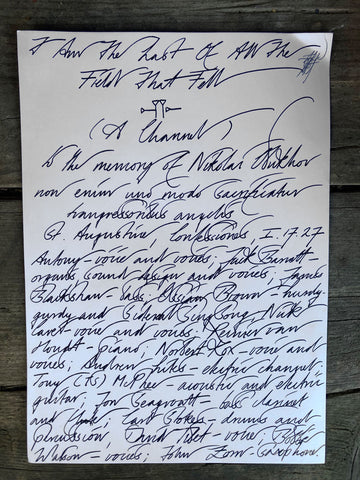 I Am The Last Of All The
Field That Fell
(A Channel)
to the memory of Nikolai Bukhov
non enim uno modo sacrificatur
transgressoribus angelis
St Augustine, Confessiones, I.17.27
Antony – voice and voices; Jack Barnett –
organs, sound design and voices; James
Blackshaw – bass; Ossian Brown – hurdy-
gurdy and Sidereal SingSong; Nick
Cave – voice and voices; Reinier van
Houdt – piano; Norbert Kox – voice and
voices; Andrew Liles – electric changeling;
Tony (TS) McPhee – acoustic and electric
guitar; Jon Seagroatt – bass clarinet
and flute; Carl Stokes – drums and
percussion; David Tibet – voice; Bobbie
Watson – voices; John Zorn – saxophone.